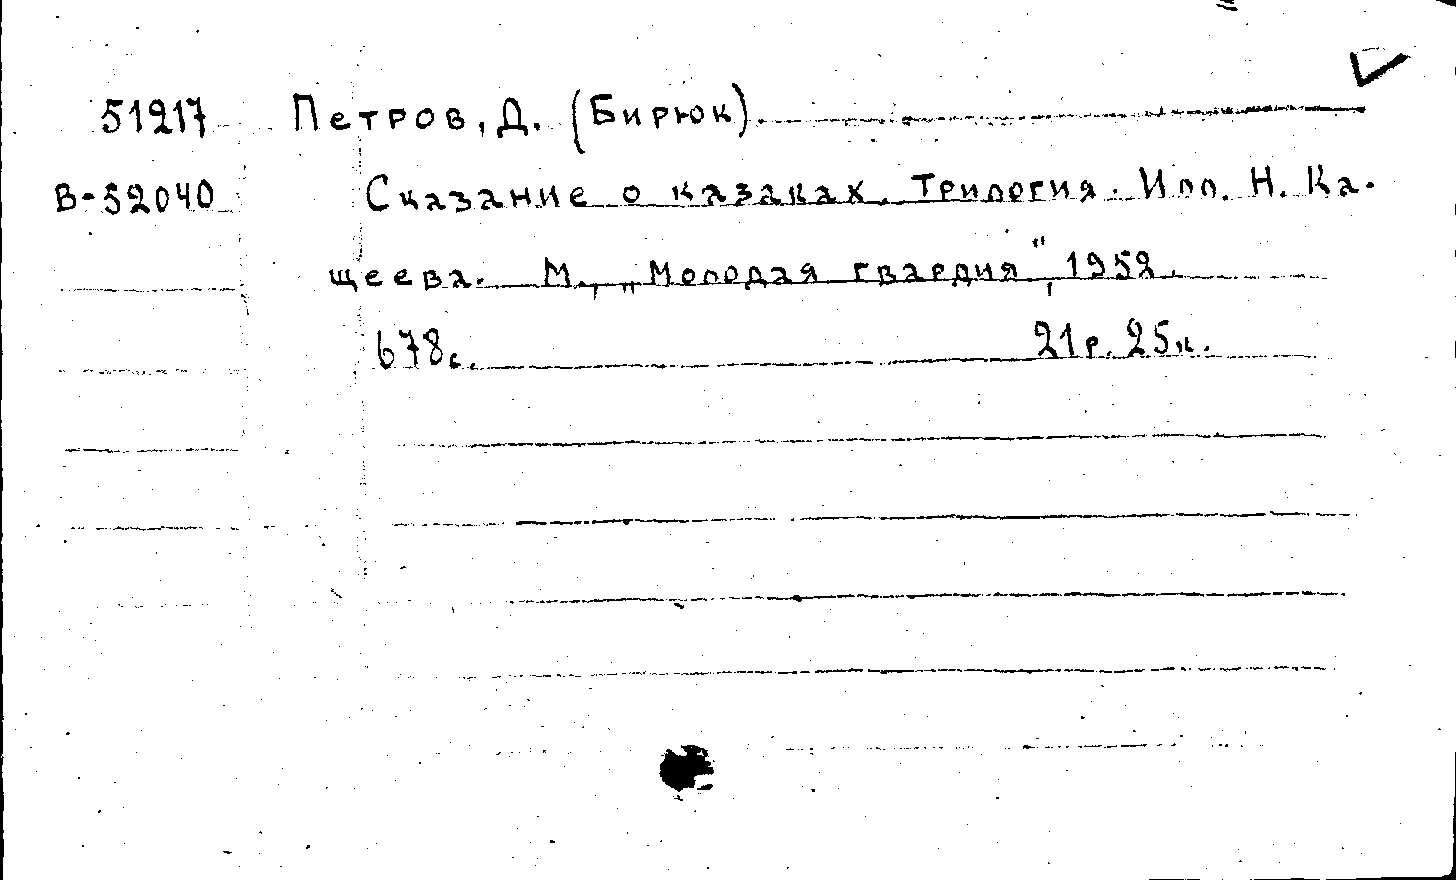 51217 Петров, Д. (Бирюк).
В-52040 Сказание о казаках. Трилогия. Илл. Н. Ка-
щеева. М., „Молодая гвардия", 1952.
678с. 21р. 25к.